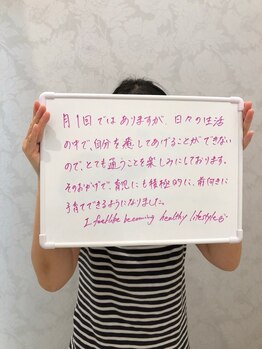 月1回ではありますが、日々の生活
の中で、自分を癒してあげることができない
ので、とても通うことを楽しみにしております。
そのおかげで、育児にも積極的に、前向きに
子育てできるようになりました。
I feel like becoming healthy lifestyle